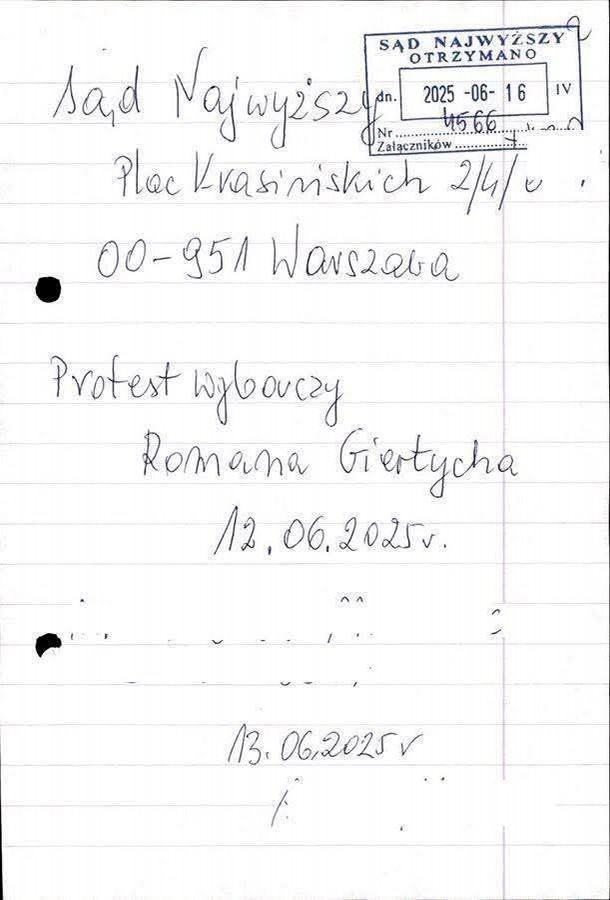 SĄD NAJWYŻSZY
OTRZYMANO
dn. 2025 -06- 16 IV
Nr 4566
Załączników
Sąd Najwyższy
Plac Krasińskich 2/4/
00-951 Warszawa
Protest wyborczy
Romana Giertycha
12.06.2025r.
13.06.2025r